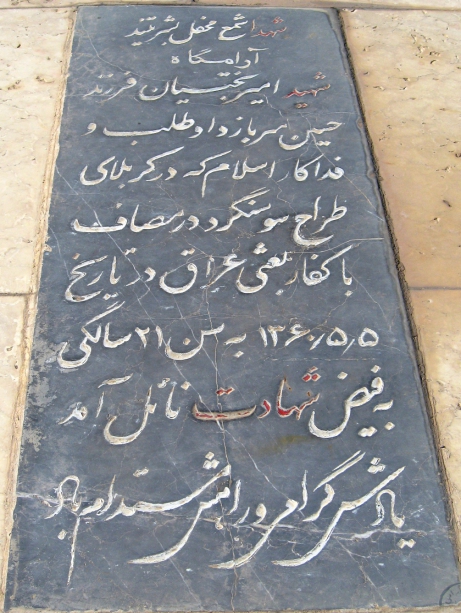 شهدا شمع محفل بشریتند
آرامگاه
شهید امیر نجیبیان فرزند
حسین سرباز داوطلب و
فداکار اسلام که در کربلای
طراح سوسنگرد در مصاف
با کفار بعثی عراق در تاریخ
۱۳۶۰٫۵٫۵ به سن ۲۱ سالگی
به فیض شهادت نائل آمد
یادش گرامی و راهش مستدام باد